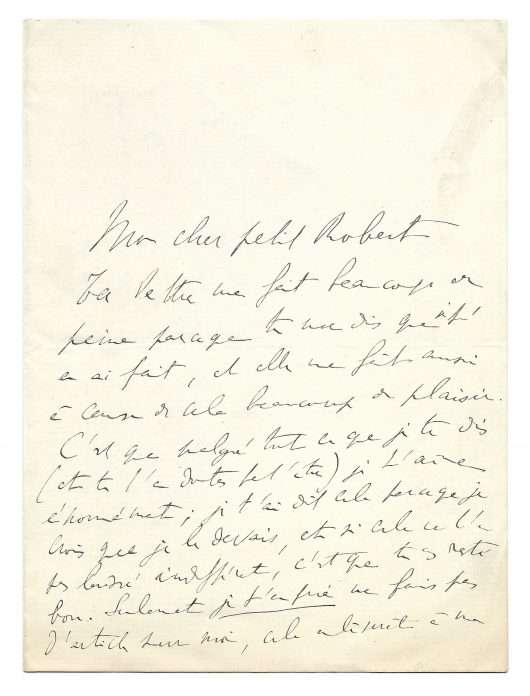 Mon cher petit Robert
Ta lettre me fait beaucoup de
peine parce que tu me dis que je t'
en ai fait, et elle me fait aussi
à cause de cela beaucoup de plaisir.
C'est que malgré tout ce que je te dis
(et tu t'en doutes peut'être) je t'aime
énormément; je t'ai dit cela parce que je
crois que je le devais, et si cela ne t'a
pas laissé indifférent, c'est que tu es resté
bon. Seulement je t'en prie ne fais pas
d'article sur moi, cela à ma